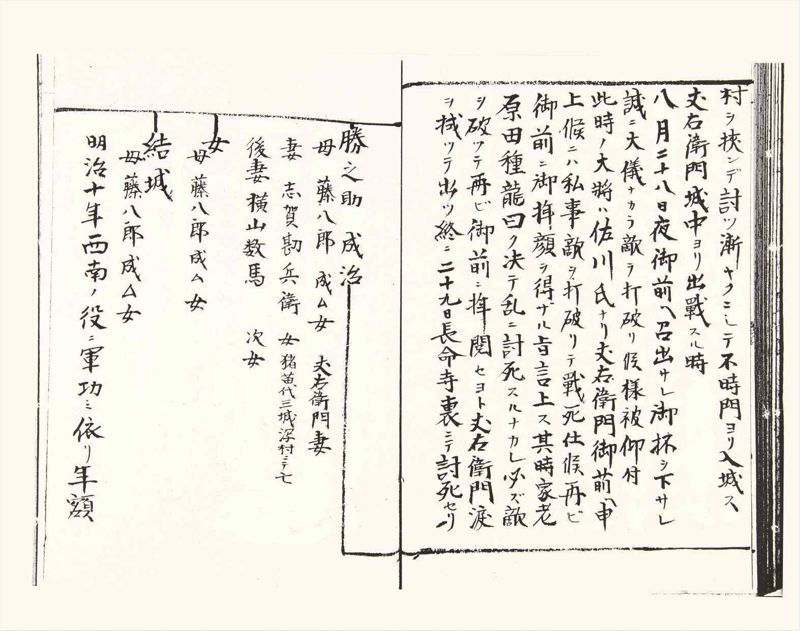 村ヲ挾ンデ討ツ漸ヤクニシテ不時門ヨリ入城ス
丈右衛門城中ヨリ出戰スル時
八月二十八日夜御前ヘ召出サレ御抔ヲ下サレ
誠ニ大儀ナカラ敵ヲ打破リ候樣被仰付
此時ノ大將ハ佐川氏ナリ丈右衛門御前ヘ申
上候ニハ私事敵ヲ打破リテ戰死仕候再ビ
御前ニ御拜顔ヲ得ザル旨言上ス其時家老
原田種龍曰ク決テ乱ニ討死スルナカレ必ズ敵
ヲ破ツテ再ビ御前ニ拜閲セヨト丈右衛門涙
ヲ拭ツテ出ツ終ニ二十九日長命寺裏ニテ討死セリ
勝之助成治
母 藤八郎成ム女 丈右衛門妻
妻 志賀勘兵衛 女 猪苗代三城潟村ニテ亡
後妻横山数馬 次女
女
母藤八郎成ム女
結城
母藤八郎成ム女
明治十年西南ノ役ニ軍功ニ依リ年額